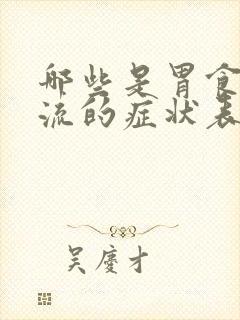 哪些是胃食
流的症状表
吴庆才